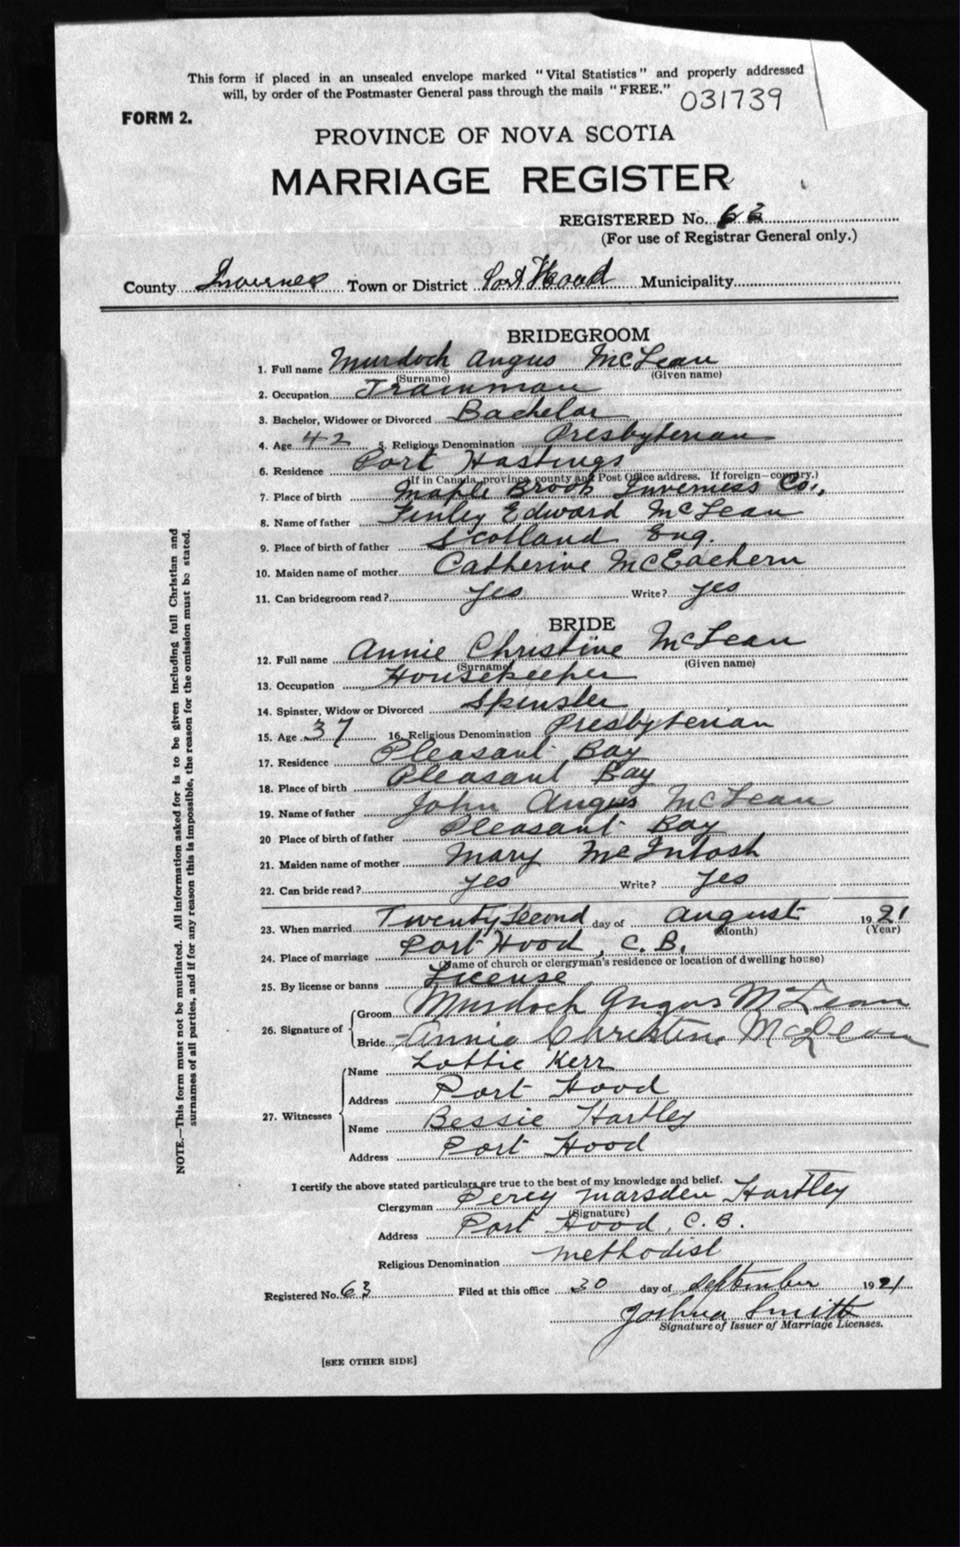 This form if placed in an unsealed envelope marked "Vital Statistics" and properly addressed
will, by order of the Postmaster General pass through the mails "FREE."
031739
FORM 2.
PROVINCE OF NOVA SCOTIA
MARRIAGE REGISTER
REGISTERED No. 63
(For use of Registrar General only.)
County Inverness Town or District Port Hood Municipality
BRIDEGROOM
1. Full name Murdoch Angus McLean
(Surname) (Given name)
2. Occupation Trainman
3. Bachelor, Widower or Divorced Bachelor
4. Age 42 5. Religious Denomination Presbyterian
6. Residence Port Hastings
(If in Canada, province county and Post Office address. If foreign—country.)
7. Place of birth Maple Brook Inverness Co.,
8. Name of father Finley Edward McLean
9. Place of birth of father Scotland Eng.
10. Maiden name of mother Catherine McEachern
11. Can bridegroom read? yes Write? yes
BRIDE
12. Full name Annie Christine McLean
(Surname) (Given name)
13. Occupation Housekeeper
14. Spinster, Widow or Divorced Spinster
15. Age 37 16. Religious Denomination Presbyterian
17. Residence Pleasant Bay
18. Place of birth Pleasant Bay
19. Name of father John Angus McLean
20 Place of birth of father Pleasant Bay
21. Maiden name of mother Mary McIntosh
22. Can bride read? yes Write? yes
23. When married Twenty Second day of August 1921
(Month) (Year)
24. Place of marriage Port Hood, C. B.
(Name of church or clergyman's residence or location of dwelling house)
25. By license or banns License
26. Signature of
Groom Murdoch Angus McLean
Bride Annie Christine McLean
27. Witnesses
Name Lottie Kerr
Address Port Hood
Name Bessie Hartley
Address Port Hood
I certify the above stated particulars are true to the best of my knowledge and belief.
Clergyman Percy Marsden Hartley
(Signature)
Address Port Hood, C. B.
Religious Denomination Methodist
Registered No. 63 Filed at this office 30 day of September 1921
Joshua Smith
Signature of Issuer of Marriage Licenses.
[SEE OTHER SIDE]
NOTE.—This form must not be mutilated. All information asked for is to be given including full Christian and
surnames of all parties, and if for any reason this is impossible, the reason for the omission must be stated.